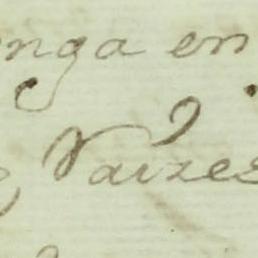 enga en
Vaizes